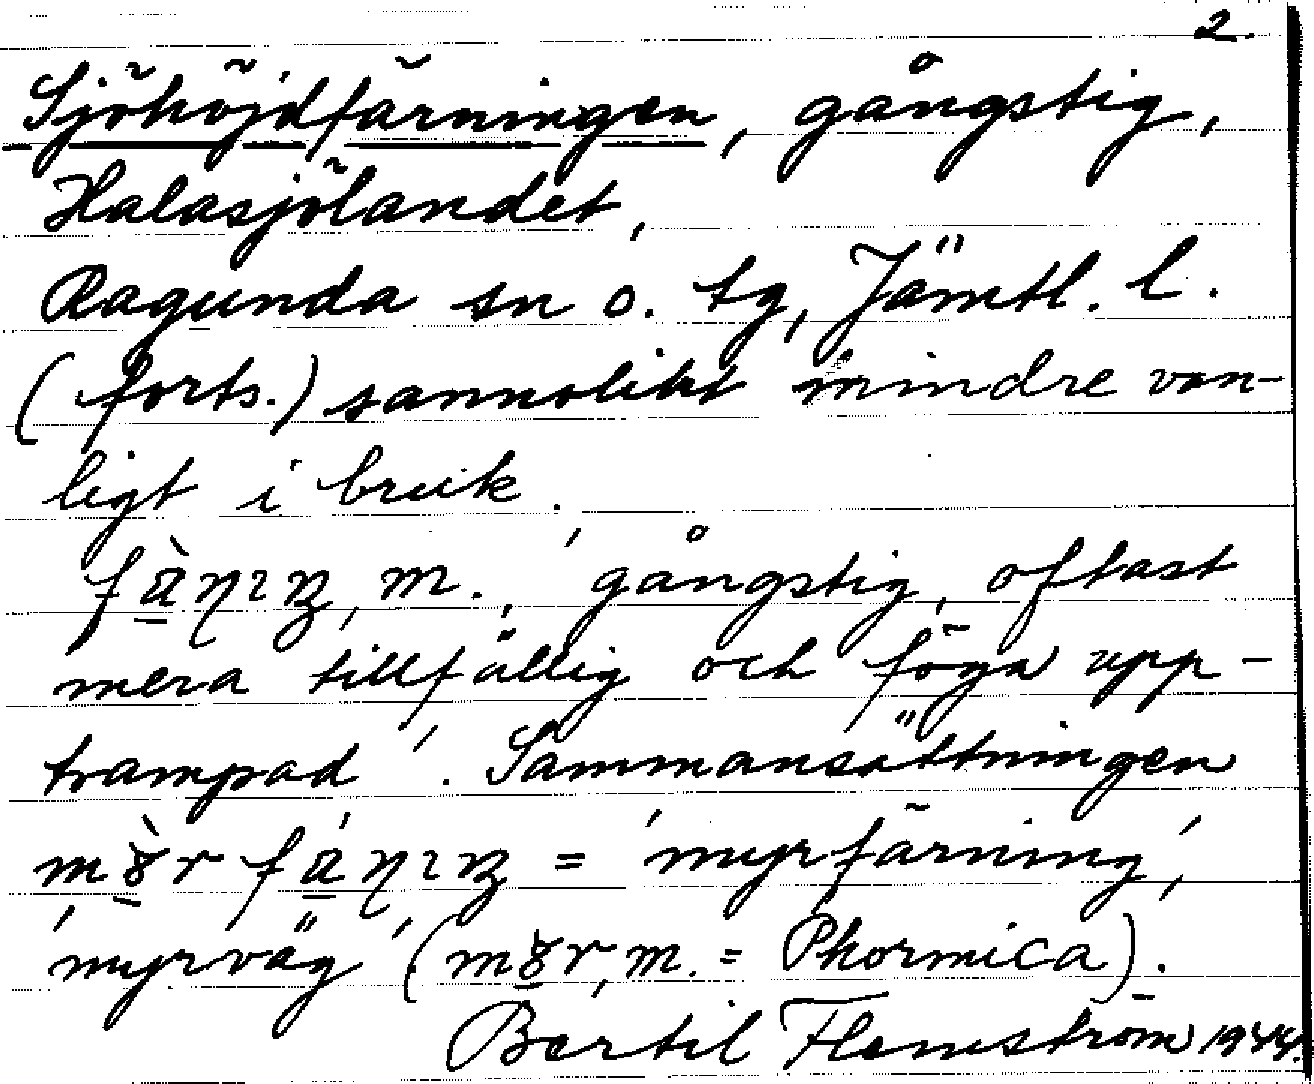 2.
Sjöhöjdfärningen, gångstig,
Halasjölandet,
Ragunda sn o. tg, Jämtl. l.
(forts.) sannolikt mindre van-
ligt i bruk.
m., 'gångstig, oftast
mera tillfällig och föga upp-
trampad'. Sammansättningen
= 'myrfärning,'
'myrväg' (m. = Phormica).
Bertil Flemström 1944.